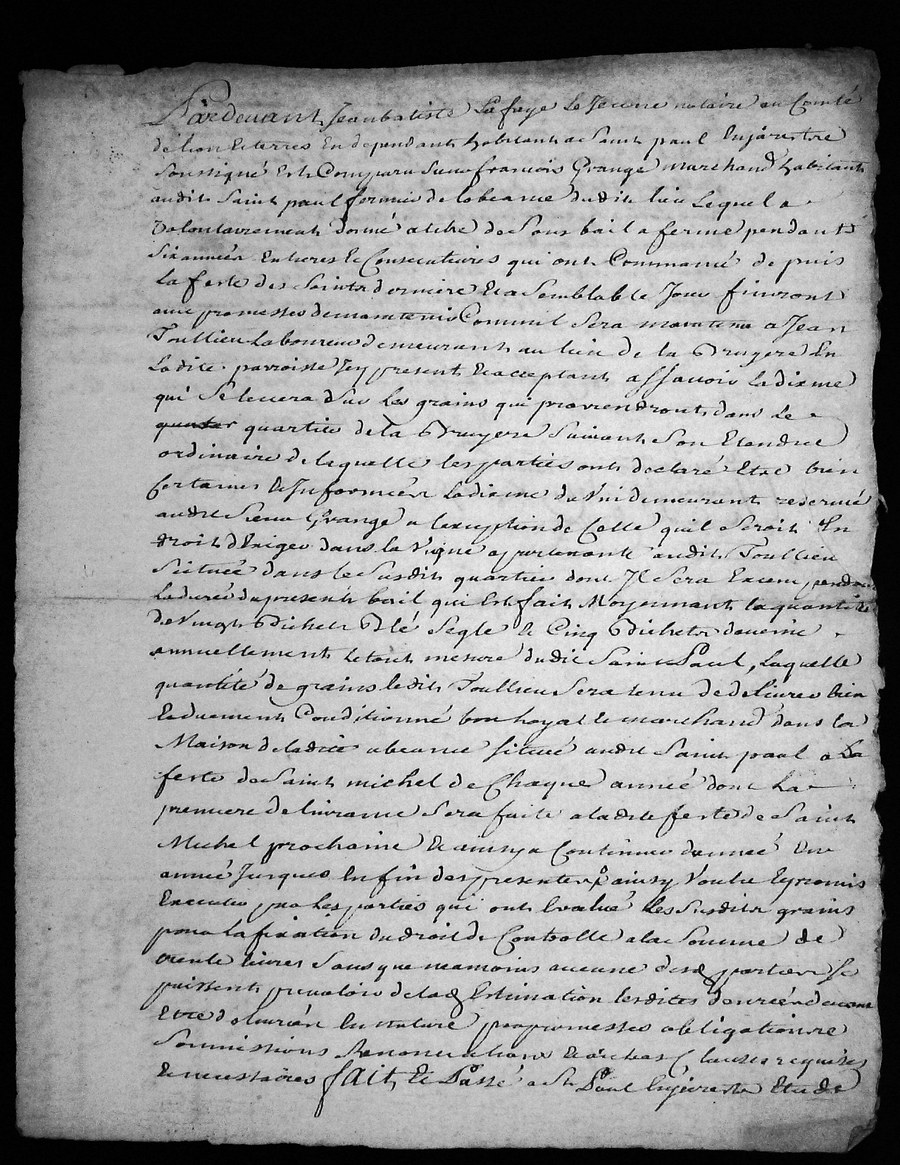 Pardevant Jean batiste Lafaye Le Jeune notaire au Comté
de lion Et terres En dependant habitant de Saint paul En jarestre
Soussigné Est Comparu Sieur francois Grange marchand habitant
audit Saint paul fermier de la beance dudit lieu Lequel a
Volontairement donné a titre de Sous bail a ferme pendant
Six années Entieres Et Consecutives qui ont Commancé depuis
La feste des Saints derniere Et a Semblable Jour finiront
avec promesses de maintenir Comm'il Sera maintenu a Jean
Toullieu Laboureur demeurant au lieu de la Bruyere En
Ladite parroisse Icy present Et acceptant assavoir La dixme
qui Se levera Sur Les grains qui proviendront dans Le
quartier quartier de la Bruyere Suivant Son Etandue
ordinaire de laquelle les parties ont declaré Etre bien
Certaines Et Informées La dixme du Vin demeurant reservée
audit Sieur Grange a l'exception de Celle quil Seroit En
droit d'Exiger dans la Vigne appartenante audit Toullieu
Scituée dans le Susdit quartier dont Il Sera Exempt pendant
La durée du present bail qui Est fait Moyennant la quantité
de Vingt Bichets Blé Segle Et Cinq Bichets davoine
annuellement Le tout mesure dudit Saint Paul, Laquelle
quantité de grains ledit Toullieu Sera tenu de delivrer bien
Et duement Conditionné bon loyal Et marchand dans la
Maison de ladite abeance située audit Saint paul a La
feste de Saint michel de Chaque année dont La
premiere delivrance Sera faite a ladite feste de Saint
Michel prochaine Et ainsy a Continuer dannée En
année Jusques En fin des presentes ainsy Voulu Et promis
Executer par Les parties qui ont Evalué Les Susdits grains
pour la fixation du droit de Controlle a la Somme de
trente livres Sans que neamoins aucune desd parties Se
puissent prevaloir de lad Estimation Lesdites denrées devant
Etre delivrées En nature par promesses obligations
Soumissions Renonciations Et autres Clauses requises
Et necessaires fait Et Passé a St Paul En jarestre Etude